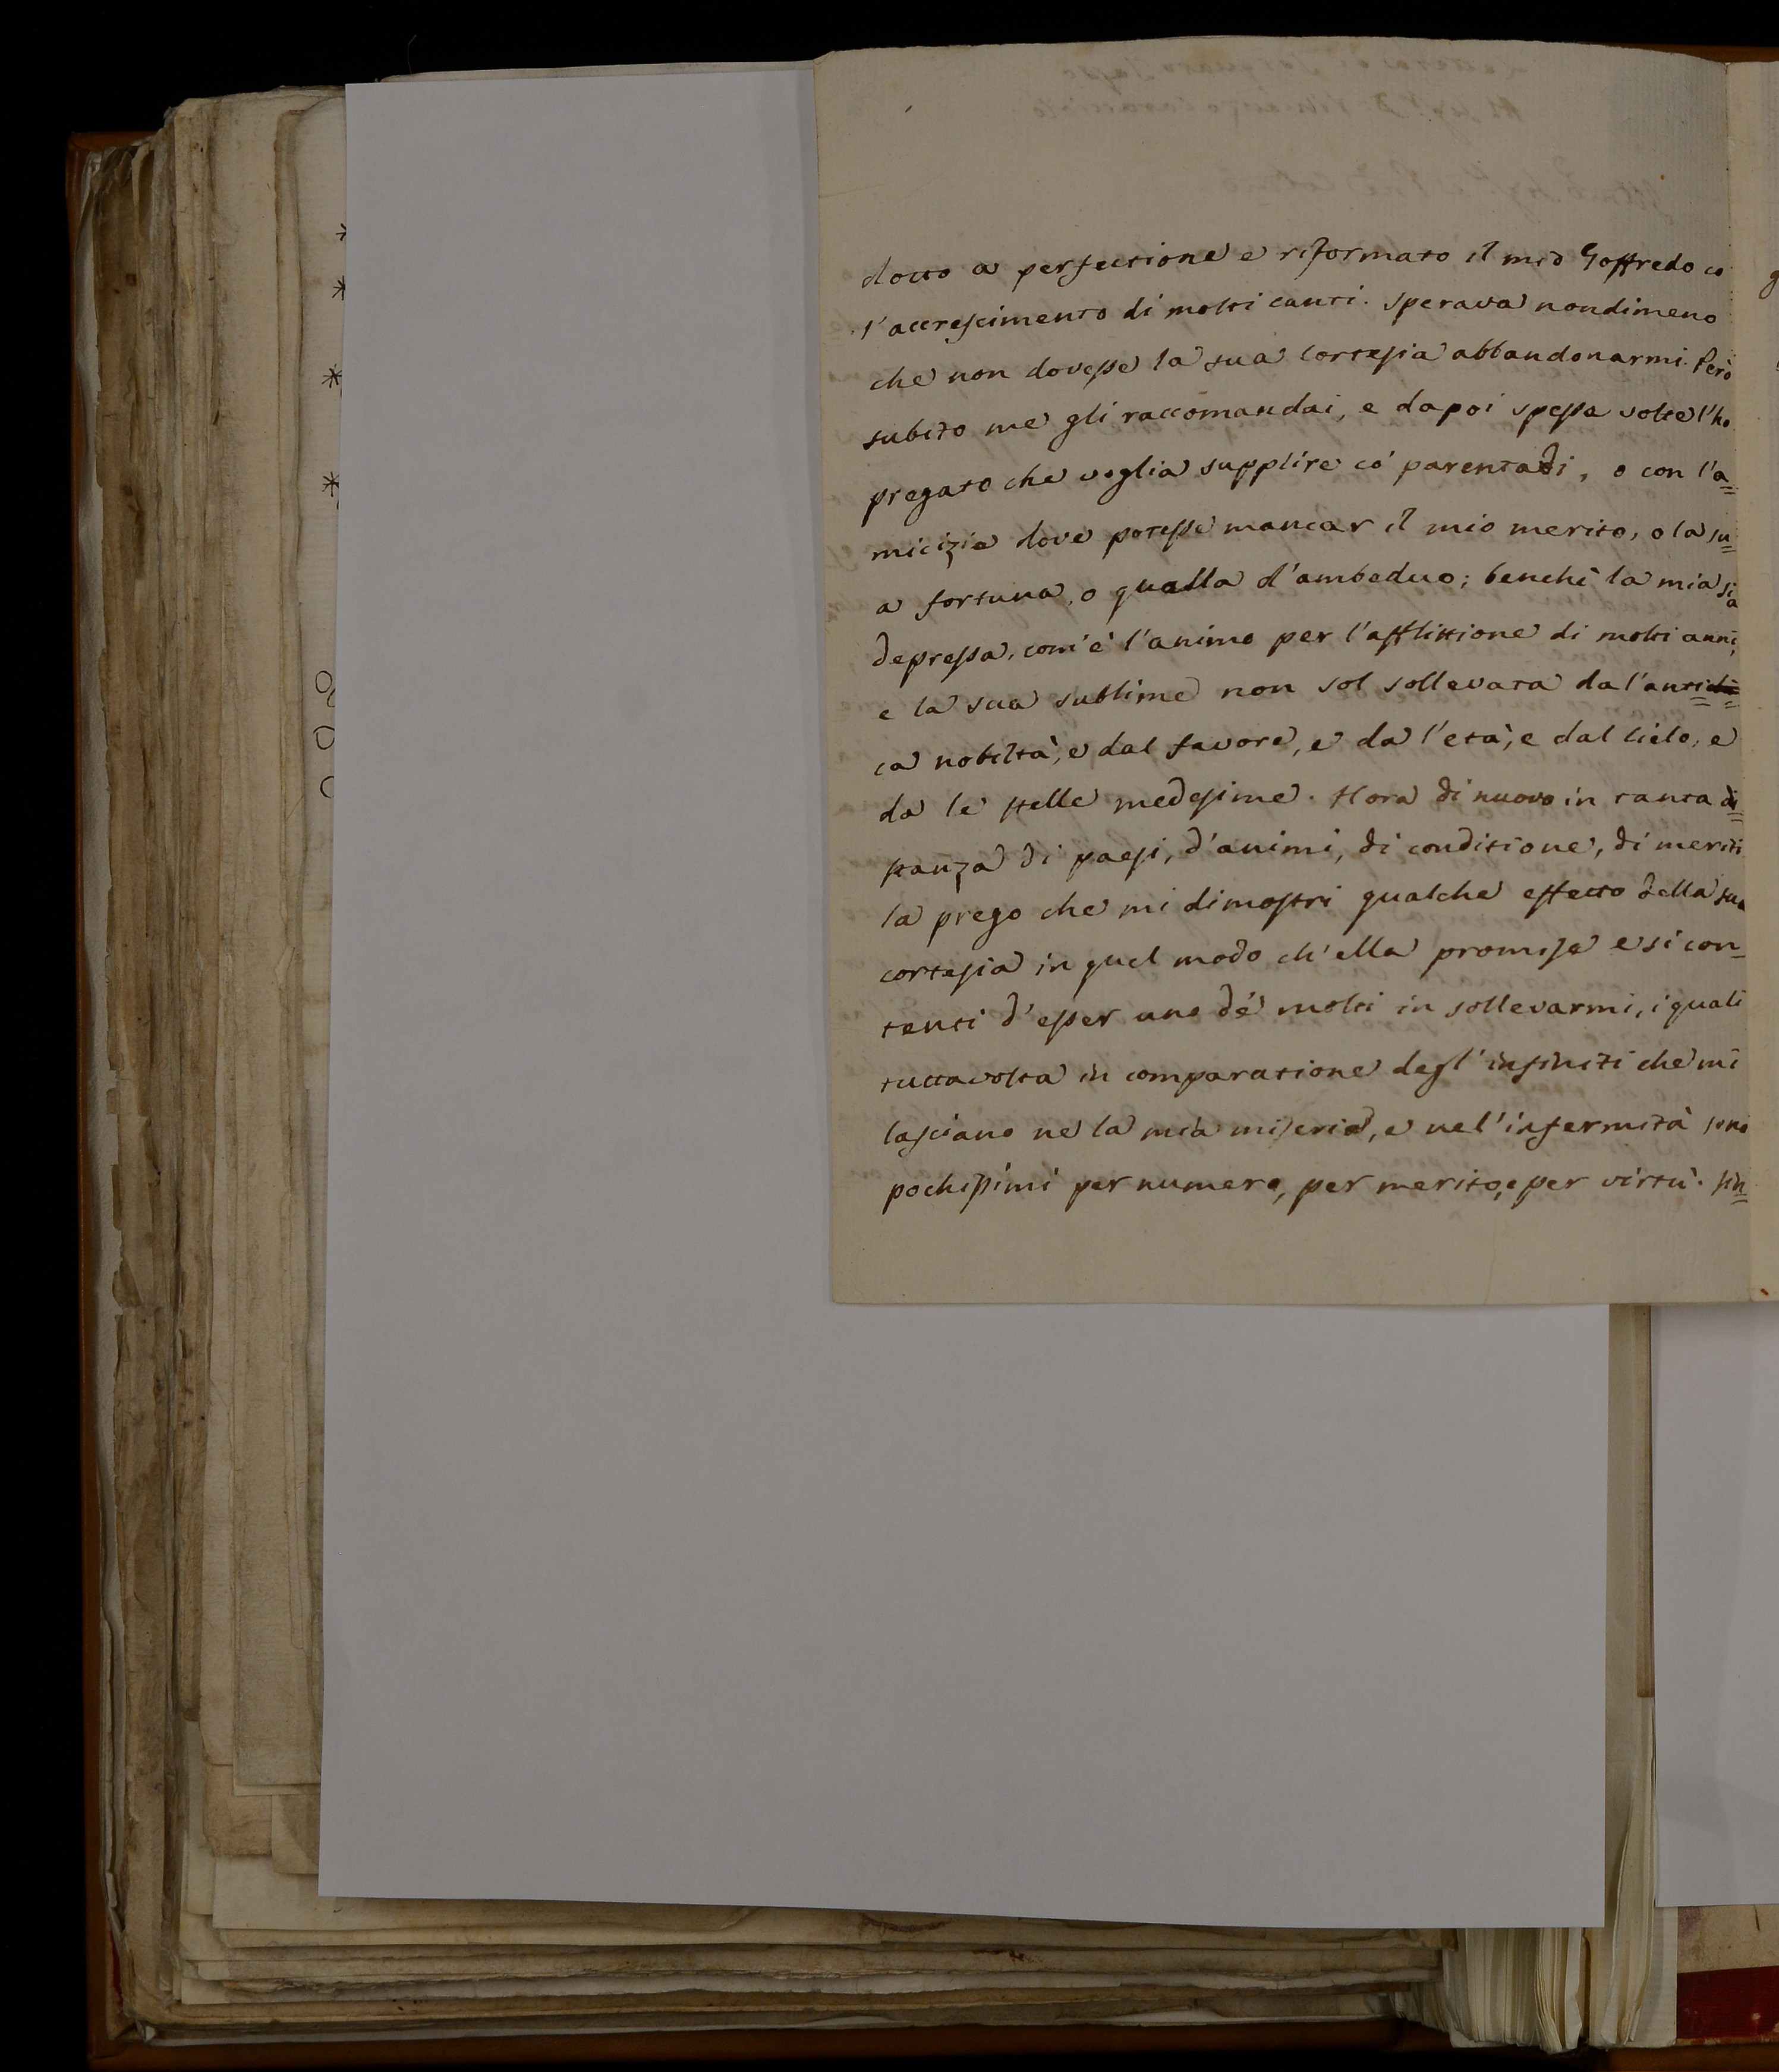 dotto a perfettione e riformato il mio Goffredo co
l'accrescimento di molti canti. sperava nondimeno
che non dovesse la sua cortesia abbandonarmi. Però
subito me gli raccomandai, e dapoi spesse volte l'ho
pregato che voglia supplire co' parentadi, o con l'a=
micizia dove potesse mancar il mio merito, o la su=
a fortuna, o quella d'ambeduo; benchè la mia sia
depressa, com'è l'animo per l'afflittione di molti anni,
e la sua sublime non sol sollevata da l'anti=
ca nobiltà, e dal favore, e da l'età, e dal cielo, e
da le stelle medesime. Hora di nuovo in tanta di=
stanza di paesi, d'animi, di conditione, di meriti
la prego che mi dimostri qualche effetto della sua
cortesia in quel modo ch'ella promise e si con=
tenti d'esser uno de' molti in sollevarmi, i quali
tuttavolta in comparatione degl'infiniti che mi
lasciano ne la mia miseria, e nel'infermità sono
pochissimi per numero, per merito, e per virtù.